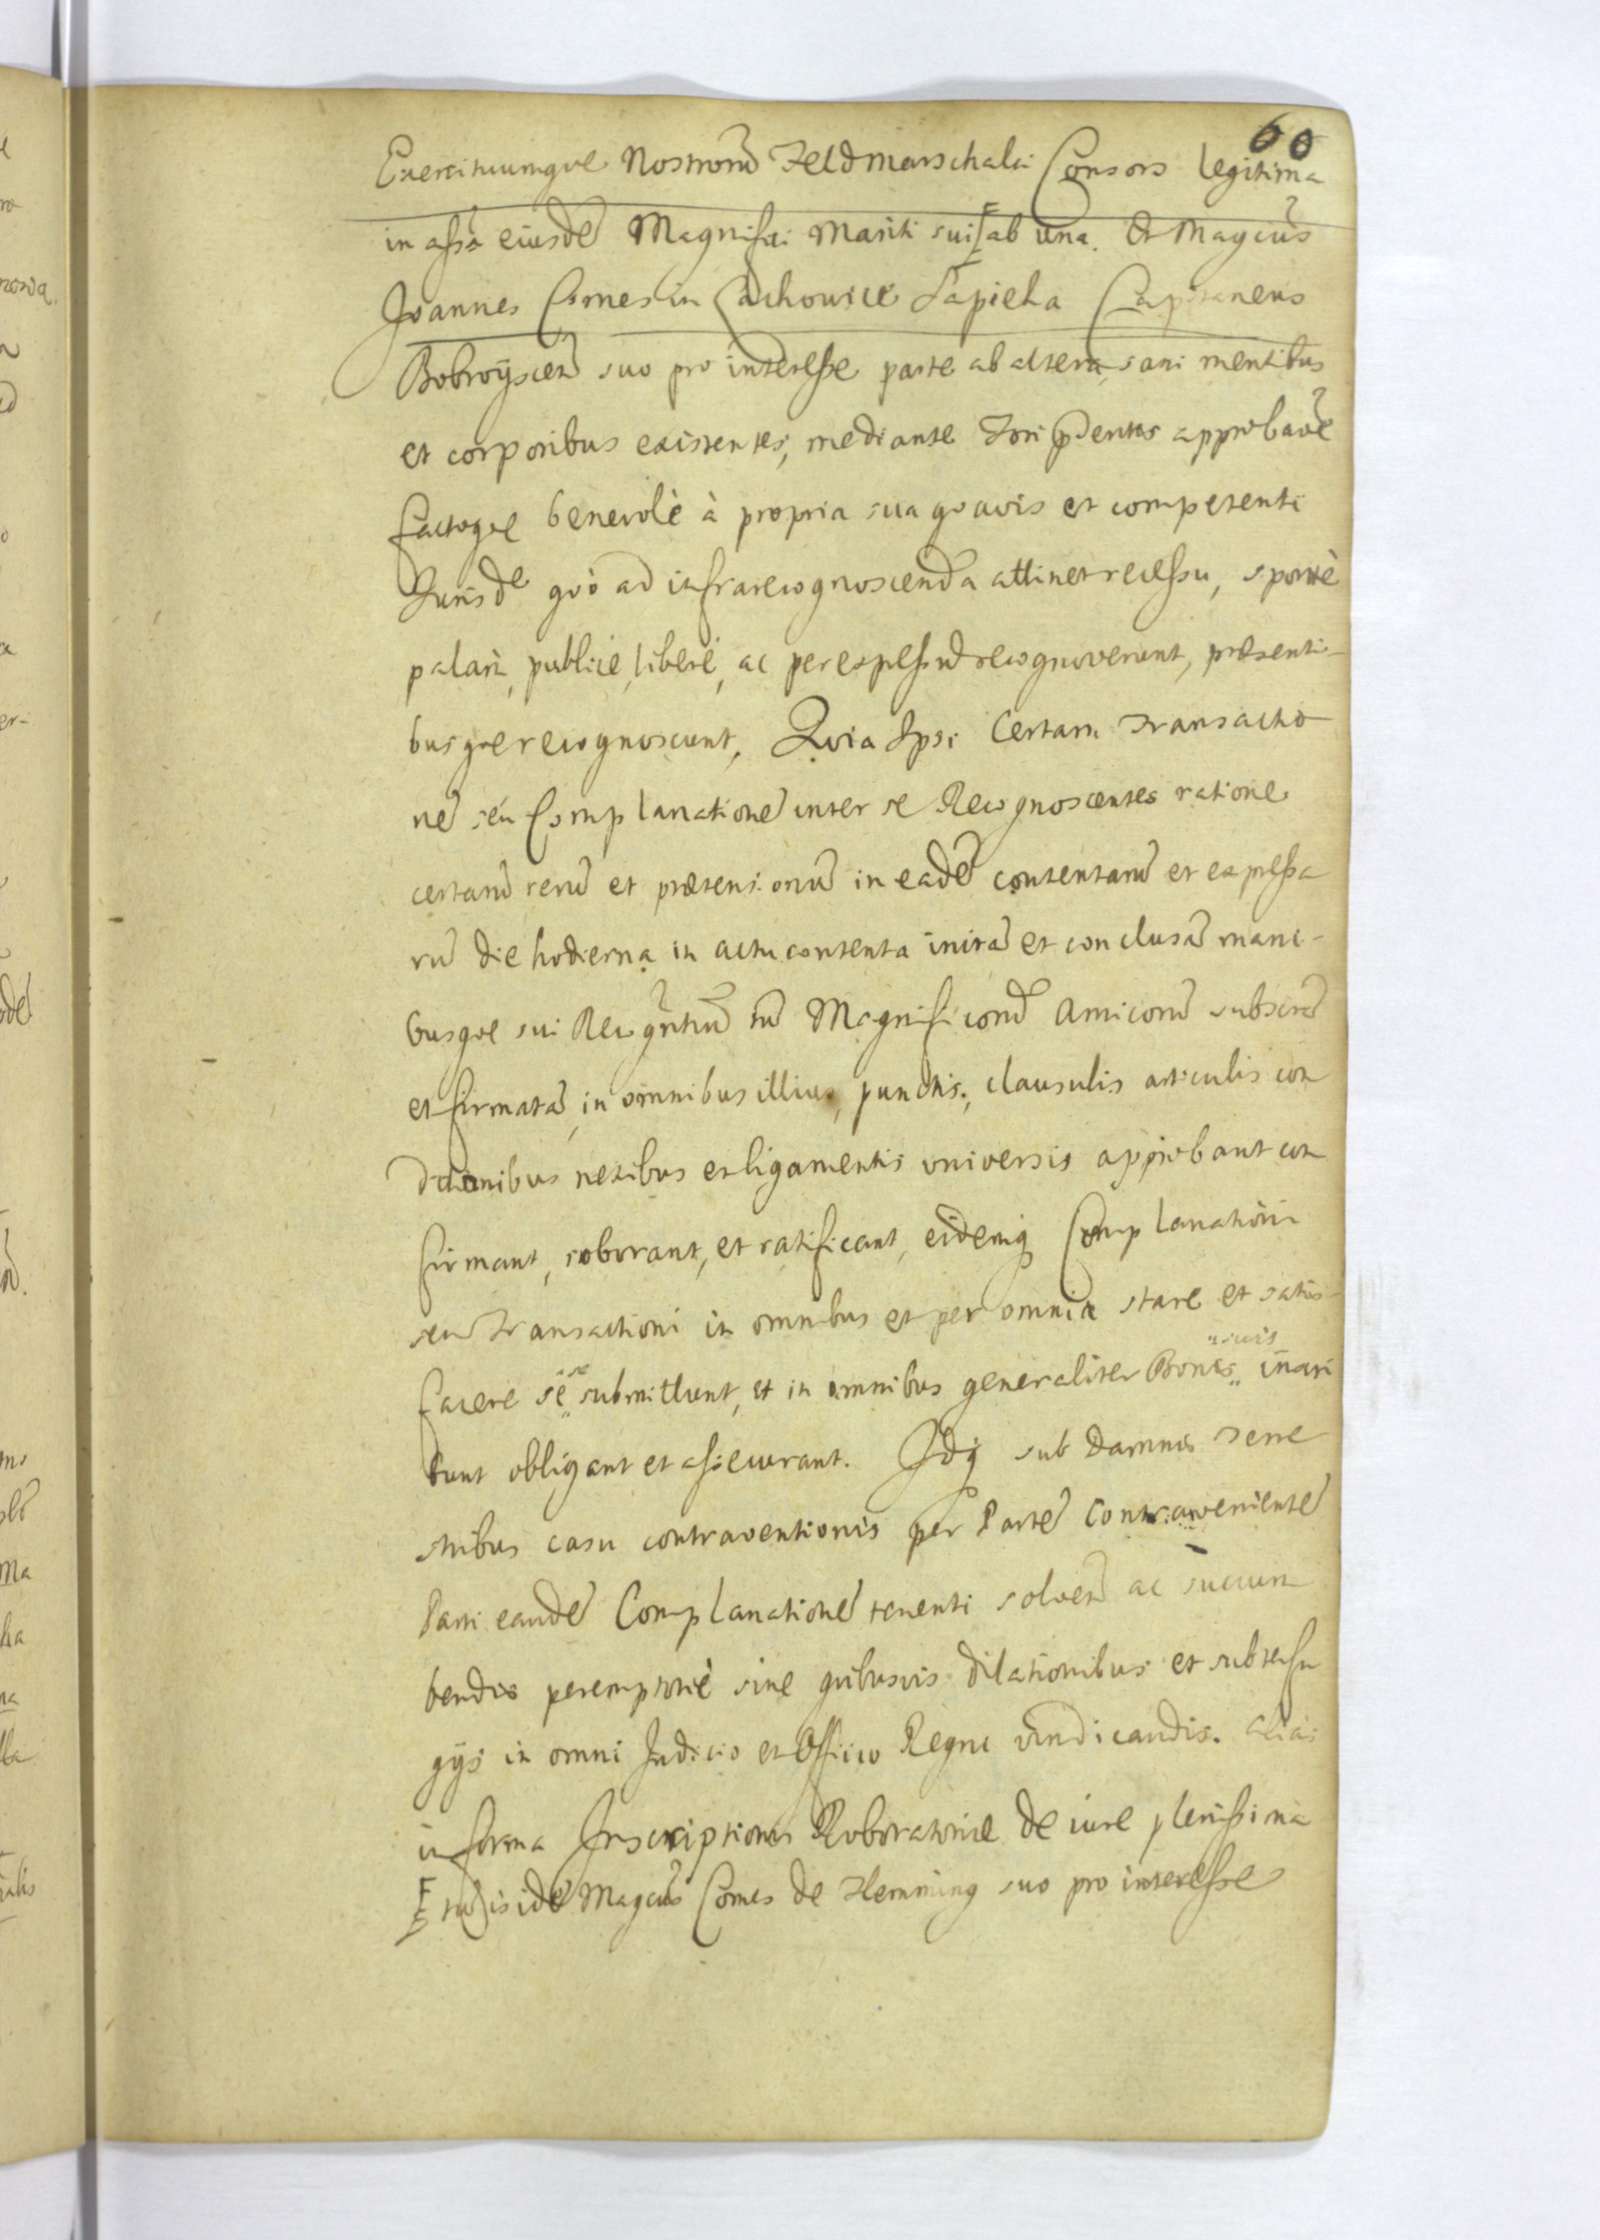 60
Exercituumque Nostrorū Feldmarschalci Consors legitima
in assa eiusdē Magnifici Mariti sui ab una. Et Magcus
Joannes Comes in Czachowice Sapieha Capitaneus
Bobroyscen suo pro interesse parte ab altera, sani mentibus
et corporibus existentes, mediante Fori pdentis approbaōe
factaque benevolè à propria sua quavis et competenti
Jurisde quò ad infrarecognoscenda attinet recessu, spontè
palàm, publicè, liberè, ac per expressū recognoverunt, præsenti-
busque recognoscunt, Quia Ipsi Certam Transactio
nē seu Complanationē inter se Recognoscentes ratione
certarū rerū et prætensionū in eadē contentarū et expressa
rū die hodierna in actu contenta initā et conclusā mani-
busque sui Recogntiū tū Magnificorū Amicorū subscrā
et firmatā, in omnibus illius, punctis, clausulis articulis con
ditionibus nexibus et ligamentis universis approbant con
firmant, roborant, et ratificant, eidemq Complanationi
seu Transactioni in omnibus et per omnia stare et satis-
facere sē submittunt, et in omnibus generaliter Bonis suis inari
bunt obligant et assecurant. Idq sub Damnis terre
stribus casu contraventionis per Partē Contravenientē
Parti eandē Complanationē tenenti solven ac succum
bendis peremptoriè sine quibusvis dilationibus et subterfu
gijs in omni Judicio et Officio Regni vindicandis. alias
in forma Inscriptionis Roboratoriæ de iure plenissima
tū is idē Magcus Comes de Flemming suo pro interesse